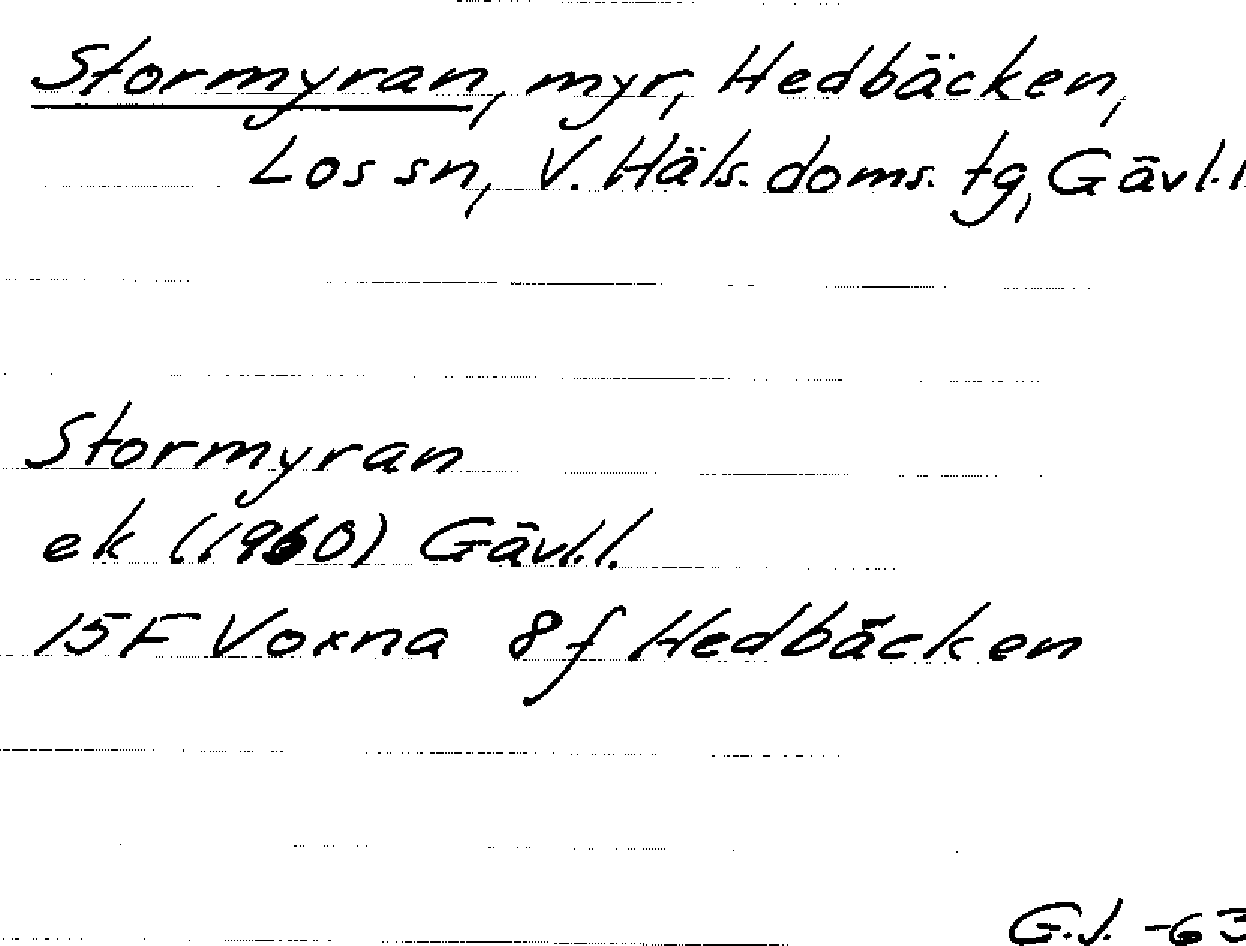 Stormyran, myr, Hedbäcken,
Los sn, V. Häls. doms. tg, Gävl.l
Stormyran
ek (1960) Gävl.l.
15F Voxna 8f Hedbäcken
G.J. -63